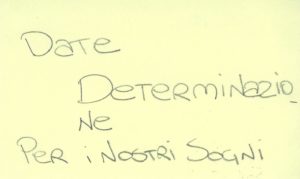 DATE
DETERMINAZIO_
NE
PER i NOSTRI SOGNI